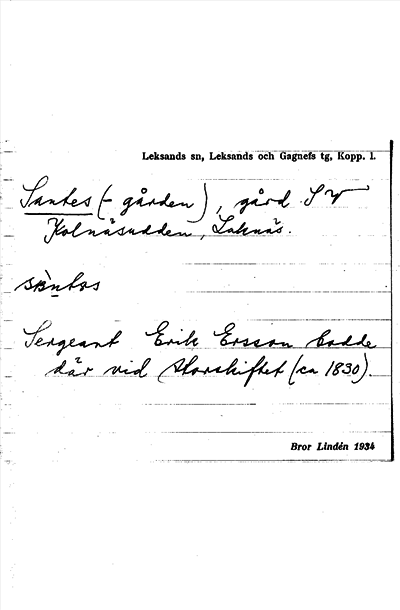 Leksands sn, Leksands och Gagnefs tg, Kopp. l.
Santes (-gården), gård SV
Kolnäsudden, Laknäs.
sàntəs
Sergeant Erik Ersson bodde
där vid storskiftet (ca 1830).
Bror Lindén 1934